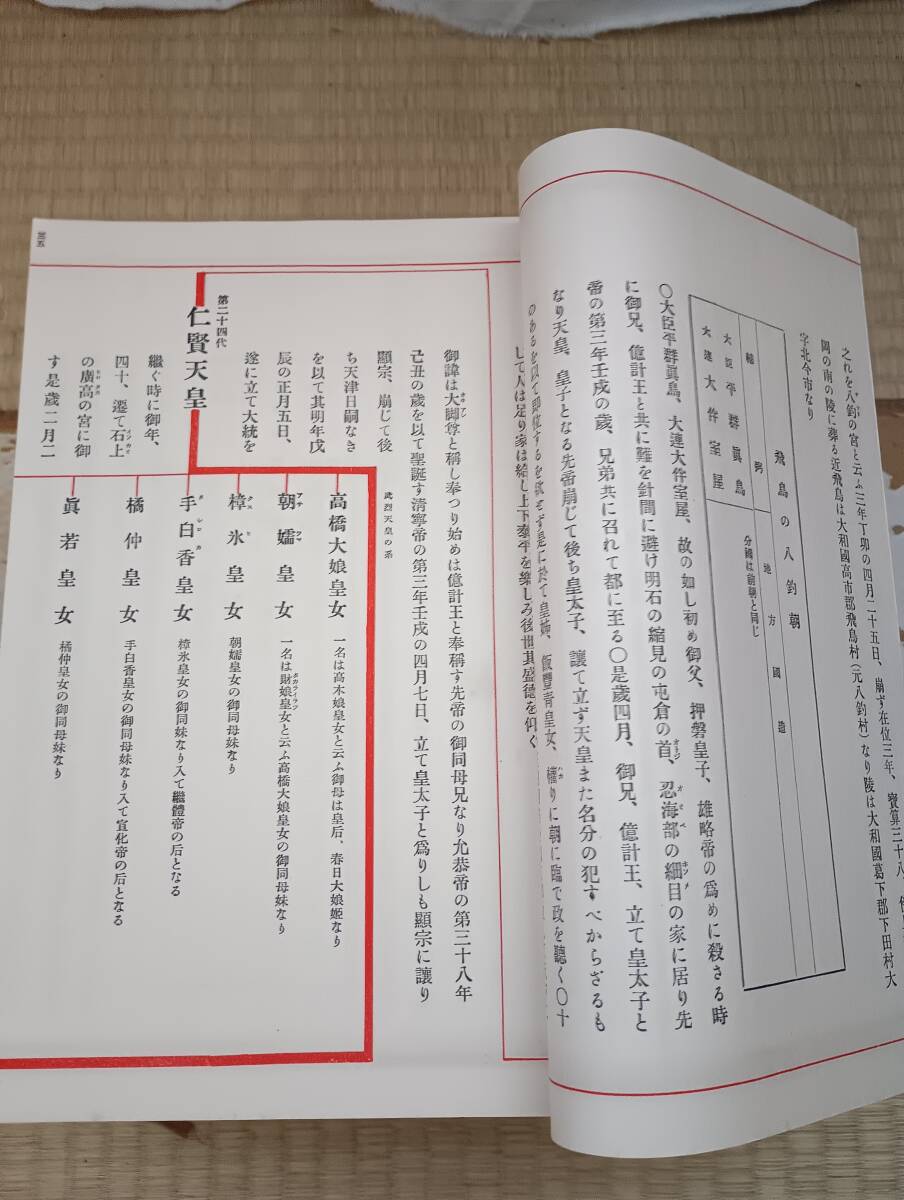 之れを八釣の宮と云ふ三年丁卯の四月二十五日、崩ず在位三年、寳算三十八、
岡の南の陵に葬る近飛鳥は大和國高市郡飛鳥村(元八釣村)なり陵は大和國葛下郡下田村大
字北今市なり
飛鳥の八釣朝
地方國造
分國は前朝と同じ
大臣平群眞鳥
大連大伴室屋
〇大臣平群眞鳥、大連大伴室屋、故の如し初め御父、押磐皇子、雄略帝の爲めに殺さる時
に御兄、億計王と共に難を針間に避け明石の縮見の屯倉の首、忍海部の細目の家に居り先
帝の第三年壬戌の歲、兄弟共に召れて都に至る〇是歲四月、御兄、億計王、立て皇太子と
なり天皇、皇子となる先帝崩じて後ち皇太子、讓て立ず天皇また名分の犯すべからざるも
のあるを以て即位するを欲せず是に於て皇姉、飯豐靑皇女、權りに朝に臨で政を聽く〇十
して人は足り家は給し上下泰平を樂しみ後世其盛德を仰ぐ
御諱は大脚尊と稱し奉つり始めは億計王と奉稱す先帝の御同母兄なり允恭帝の第三十八年
己丑の歲を以て聖誕す淸寧帝の第三年壬戌の四月七日、立て皇太子と爲りしも顯宗に讓り
顯宗、崩じて後
ち天津日嗣なき
を以て其明年戊
辰の正月五日、
遂に立て大統を
第二十四代
仁賢天皇
繼ぐ時に御年、
四十、遷て石上
の廣高の宮に御
す是歲二月二
武烈天皇の系
高橋大娘皇女 一名は高木娘皇女と云ふ御母は皇后、春日大娘姬なり
朝嬬皇女 一名は財娘皇女と云ふ高橋大娘皇女の御同母妹なり
樟氷皇女 朝嬬皇女の御同母妹なり
手白香皇女 樟氷皇女の御同母妹なり入て繼體帝の后となる
橘仲皇女 手白香皇女の御同母妹なり入て宣化帝の后となる
眞若皇女 橘仲皇女の御同母妹なり
三五